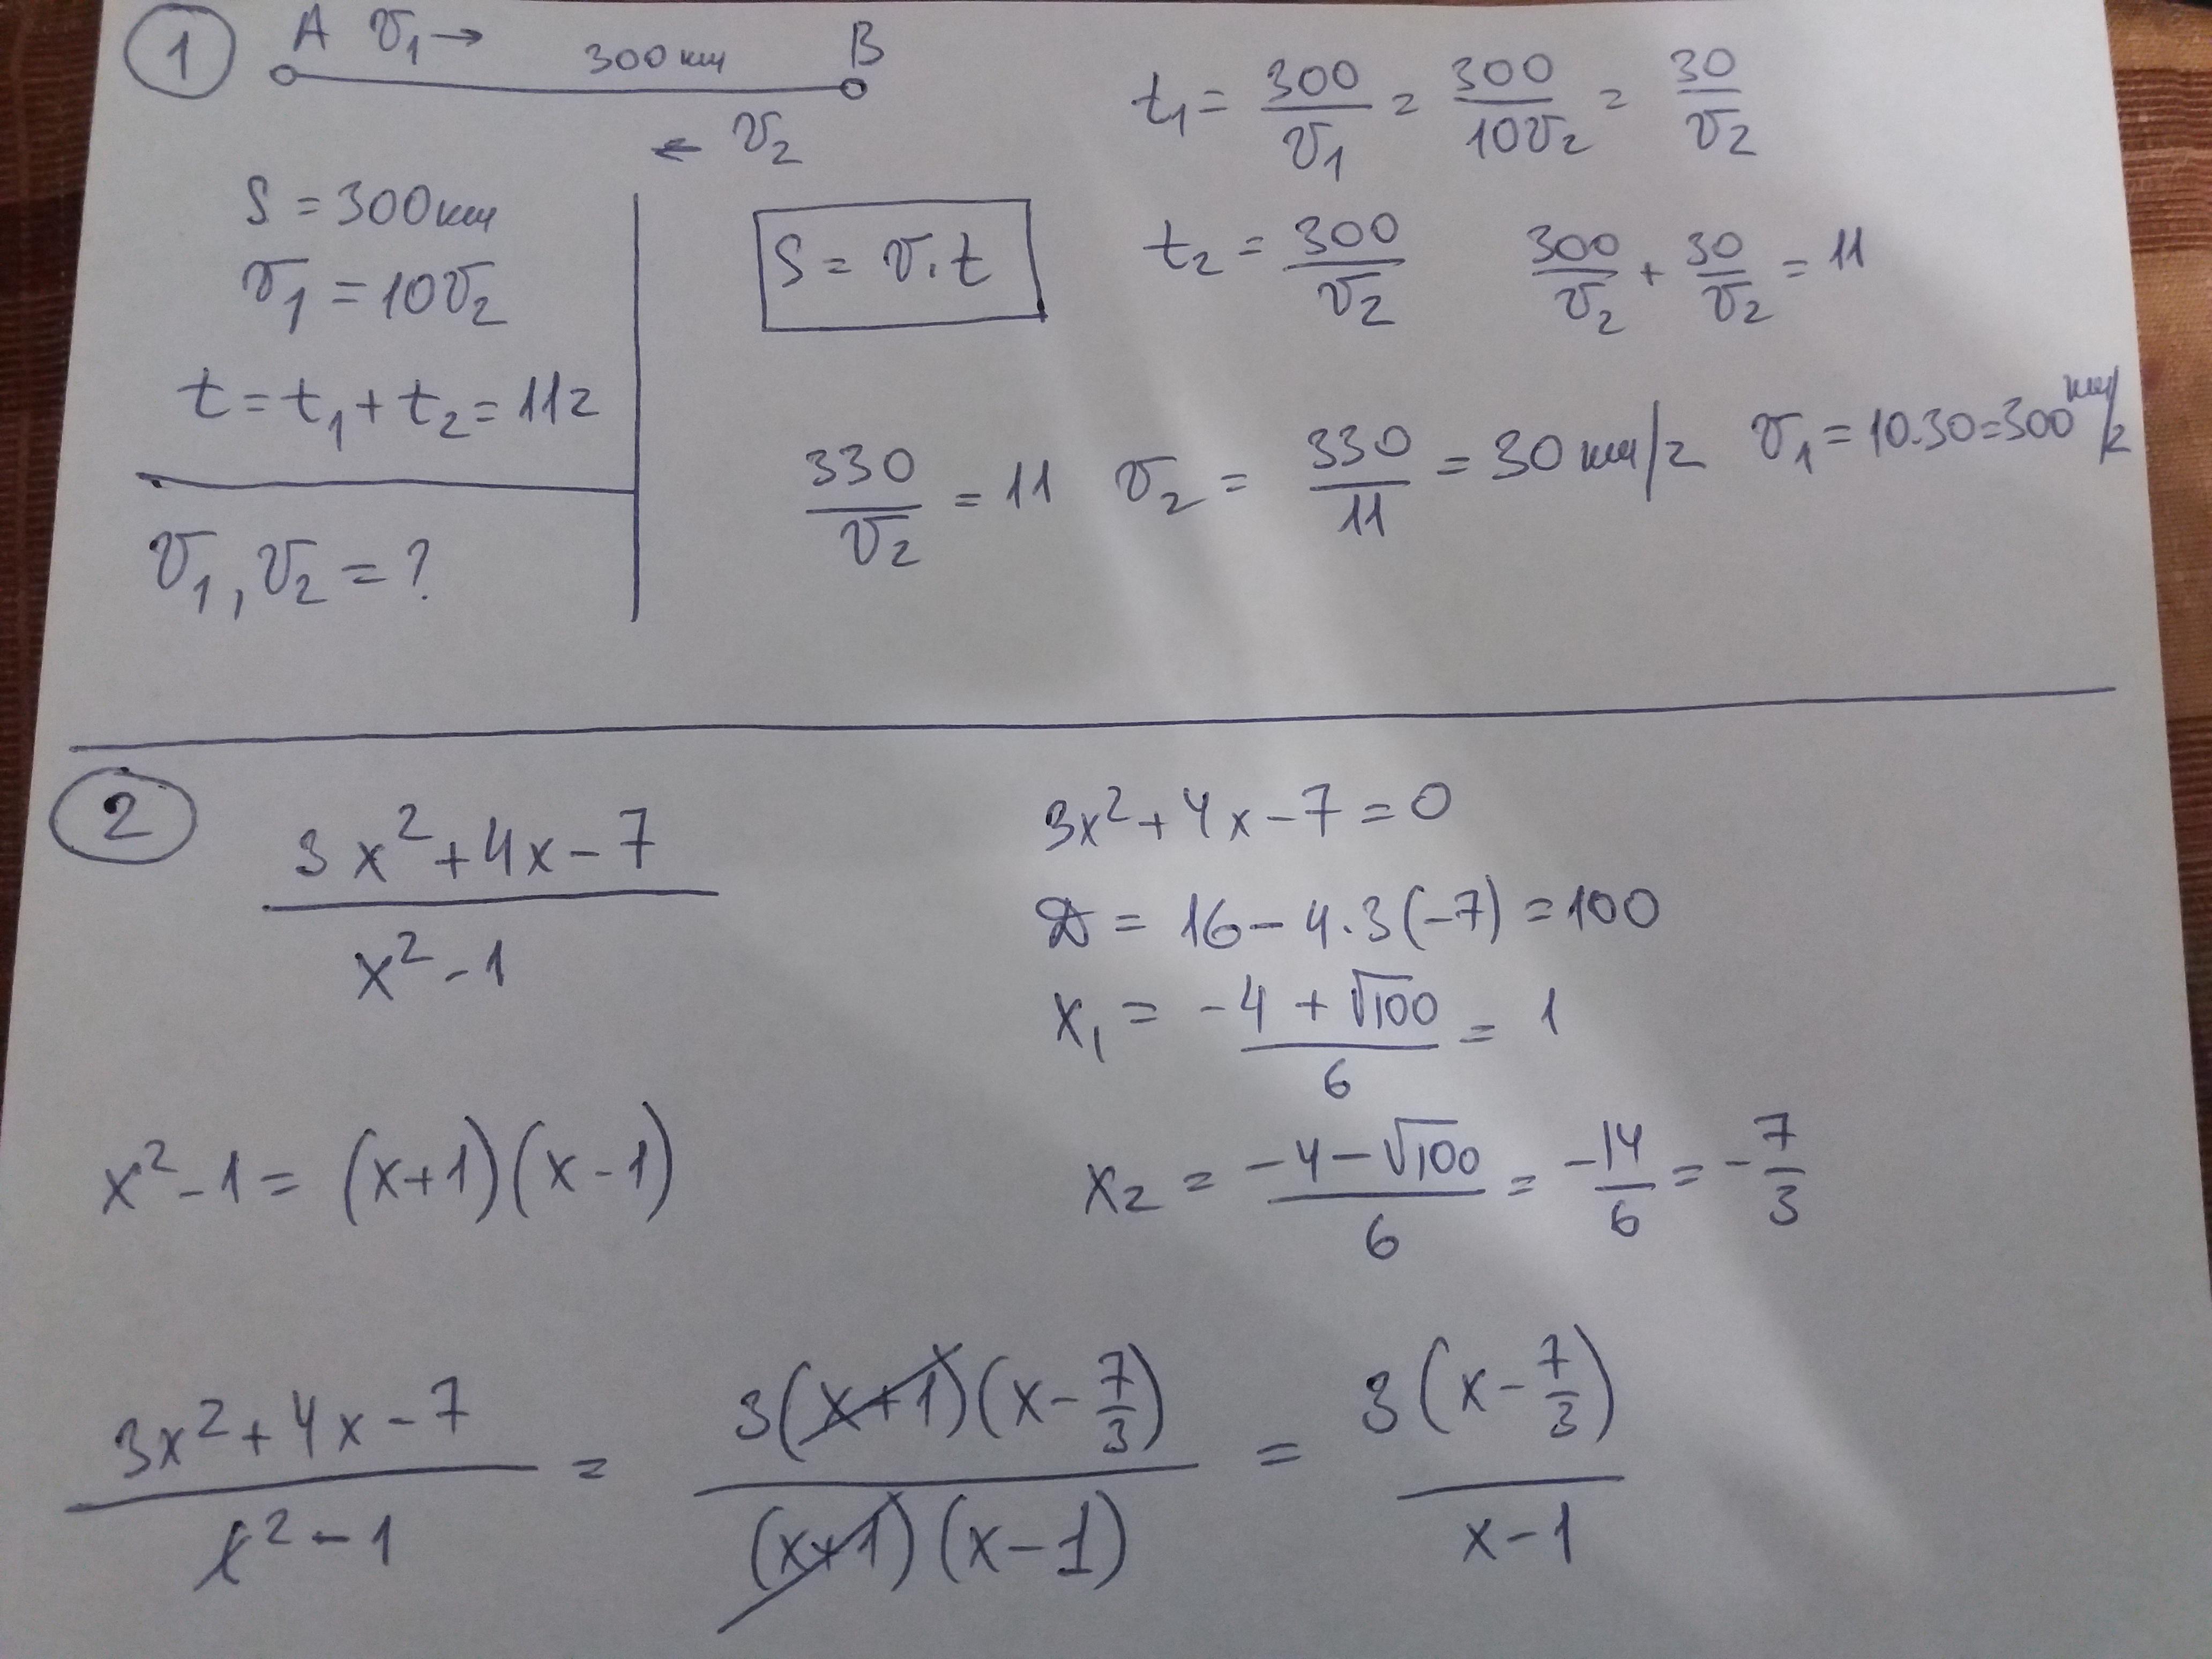 1
A v₁→ 300 км B
← v₂
S = 300 км
v₁ = 10v₂
t = t₁ + t₂ = 11 г
v₁, v₂ = ?
S = v.t
t₁ = 300/v₁ = 300/10v₂ = 30/v₂
t₂ = 300/v₂ 300/v₂ + 30/v₂ = 11
330/v₂ = 11 v₂ = 330/11 = 30 км/г v₁ = 10.30 = 300 км/г
2
(3x² + 4x - 7)/(x² - 1)
x² - 1 = (x+1)(x-1)
3x² + 4x - 7 = 0
D = 16 - 4.3(-7) = 100
x₁ = (-4 + √100)/6 = 1
x₂ = (-4 - √100)/6 = -14/6 = -7/3
(3x² + 4x - 7)/(x² - 1) = 3(x+1)(x - 7/3)/((x+1)(x-1)) = 3(x - 7/3)/(x-1)